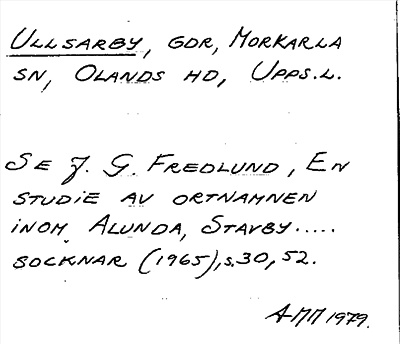 ULLSARBY, GDR, MORKARLA
SN, OLANDS HD, UPPS.L.
SE J. G. FREDLUND, EN
STUDIE AV ORTNAMNEN
INOM ALUNDA, STAVBY.....
SOCKNAR (1965), s.30, 52.
AMM 1979.